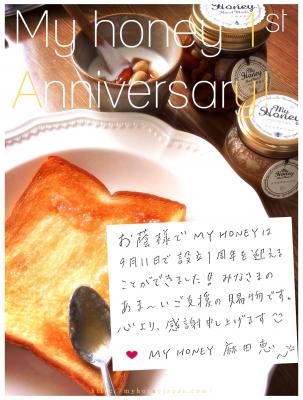 My honey 1st
Anniversary!
My
Honey
My
Honey
お蔭様で MY HONEYは
9月11日で設立1周年を迎える
ことができました!! みなさまの
あま〜いご支援の賜物です。
心より、感謝申し上げます
MY HONEY 麻田恵
http://myhoneyjapan.com/